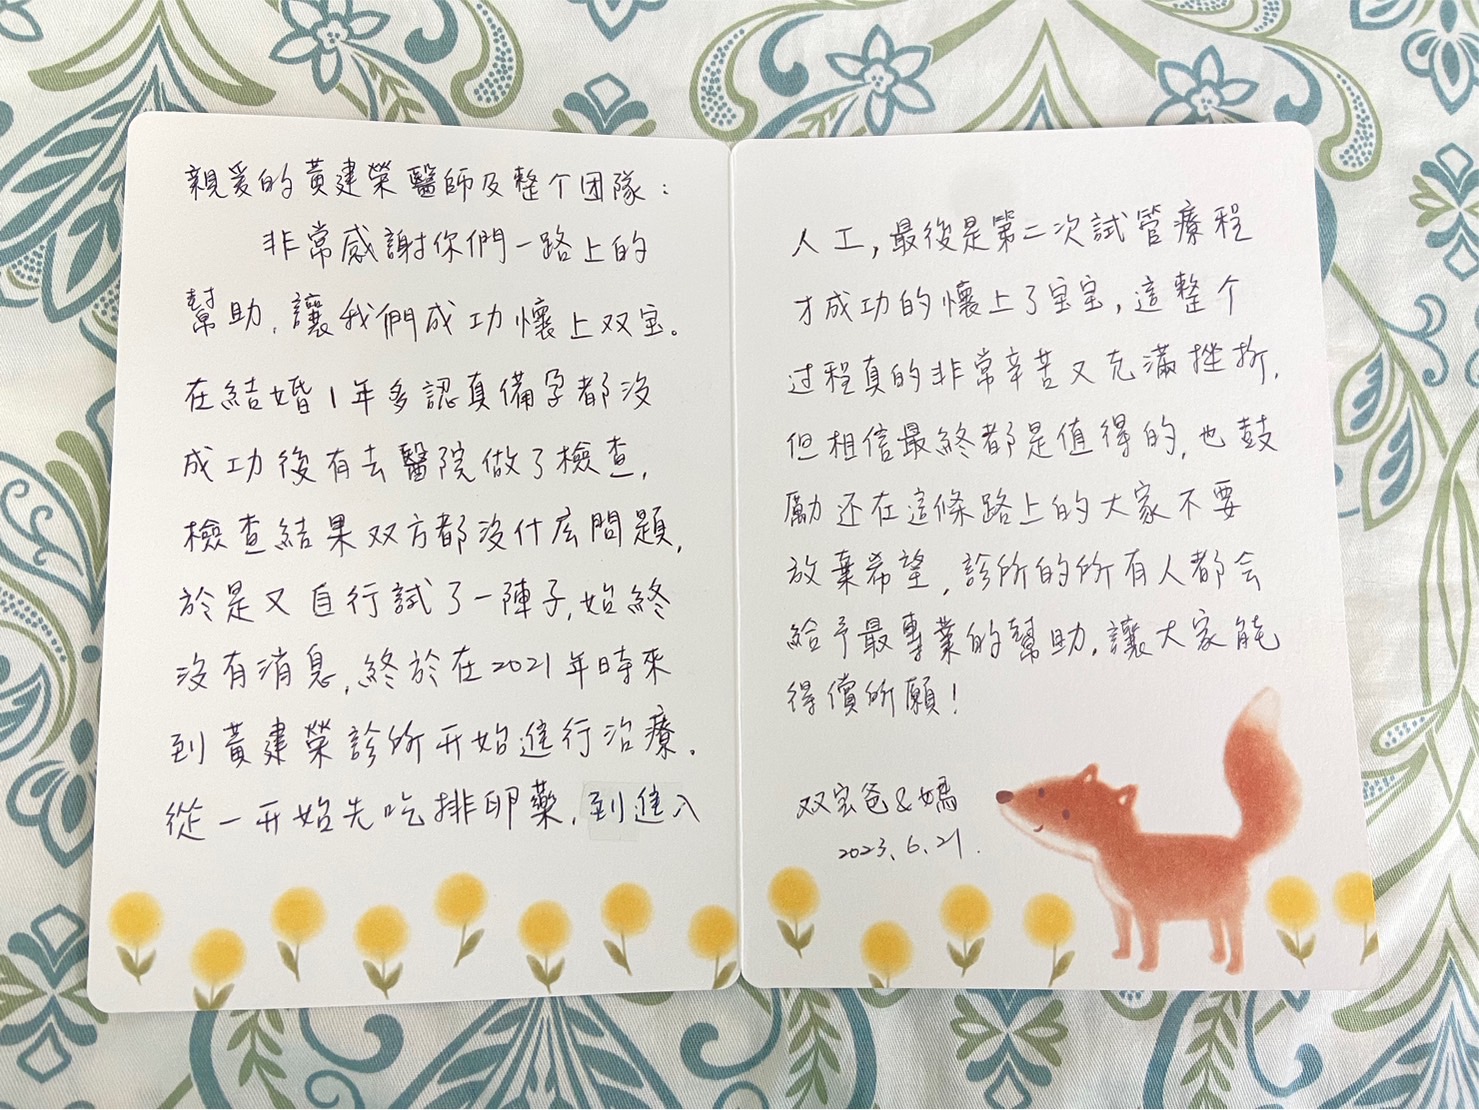 親爱的黃建榮醫師及整个团隊：
非常感謝你們一路上的
幫助，讓我們成功懷上双宝。
在結婚1年多認真備孕都沒
成功後有去醫院做了檢查，
檢查結果双方都沒什庅問題，
於是又自行試了一陣子，始終
沒有消息，終於在2021年時來
到黃建榮診所开始進行治療。
從一开始先吃排卵藥，到進入
人工，最後是第二次試管療程
才成功的懷上了宝宝，這整个
过程真的非常辛苦又充滿挫折，
但相信最終都是值得的，也鼓
勵还在這條路上的大家不要
放棄希望，診所的所有人都会
給予最專業的幫助，讓大家能
得償所願！
双宝爸&媽
2023.6.21.